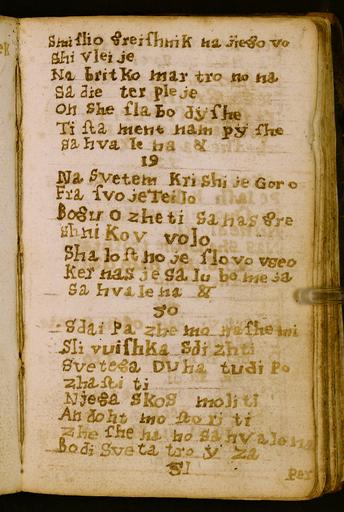 Smislio greishnik na jiego vo
shi vlei je
Na britko mar tro no na
Sa die ter ple je
On she sla bo dy she
Ti sta ment nam py she
Sa hva le na &
19
Na Svetem Kri shi je Goro
Fra svo je Teilo
Bogu o zhe ti Sa nas gre
shni Kov volo
Sha lost ho je slo vo vseo
Ker nas je sa lu bo me ja
Sa hva le na &
30
Sdai Pa zhe mo na she mi
Sli vuishka Sdi zhti
Svetega Duha tudi Po
zhasti ti
Njega skos moliti
An doht mo sto ri ti
zhe she na no sa hvale na
Bodi Sveta troy za
31
Per